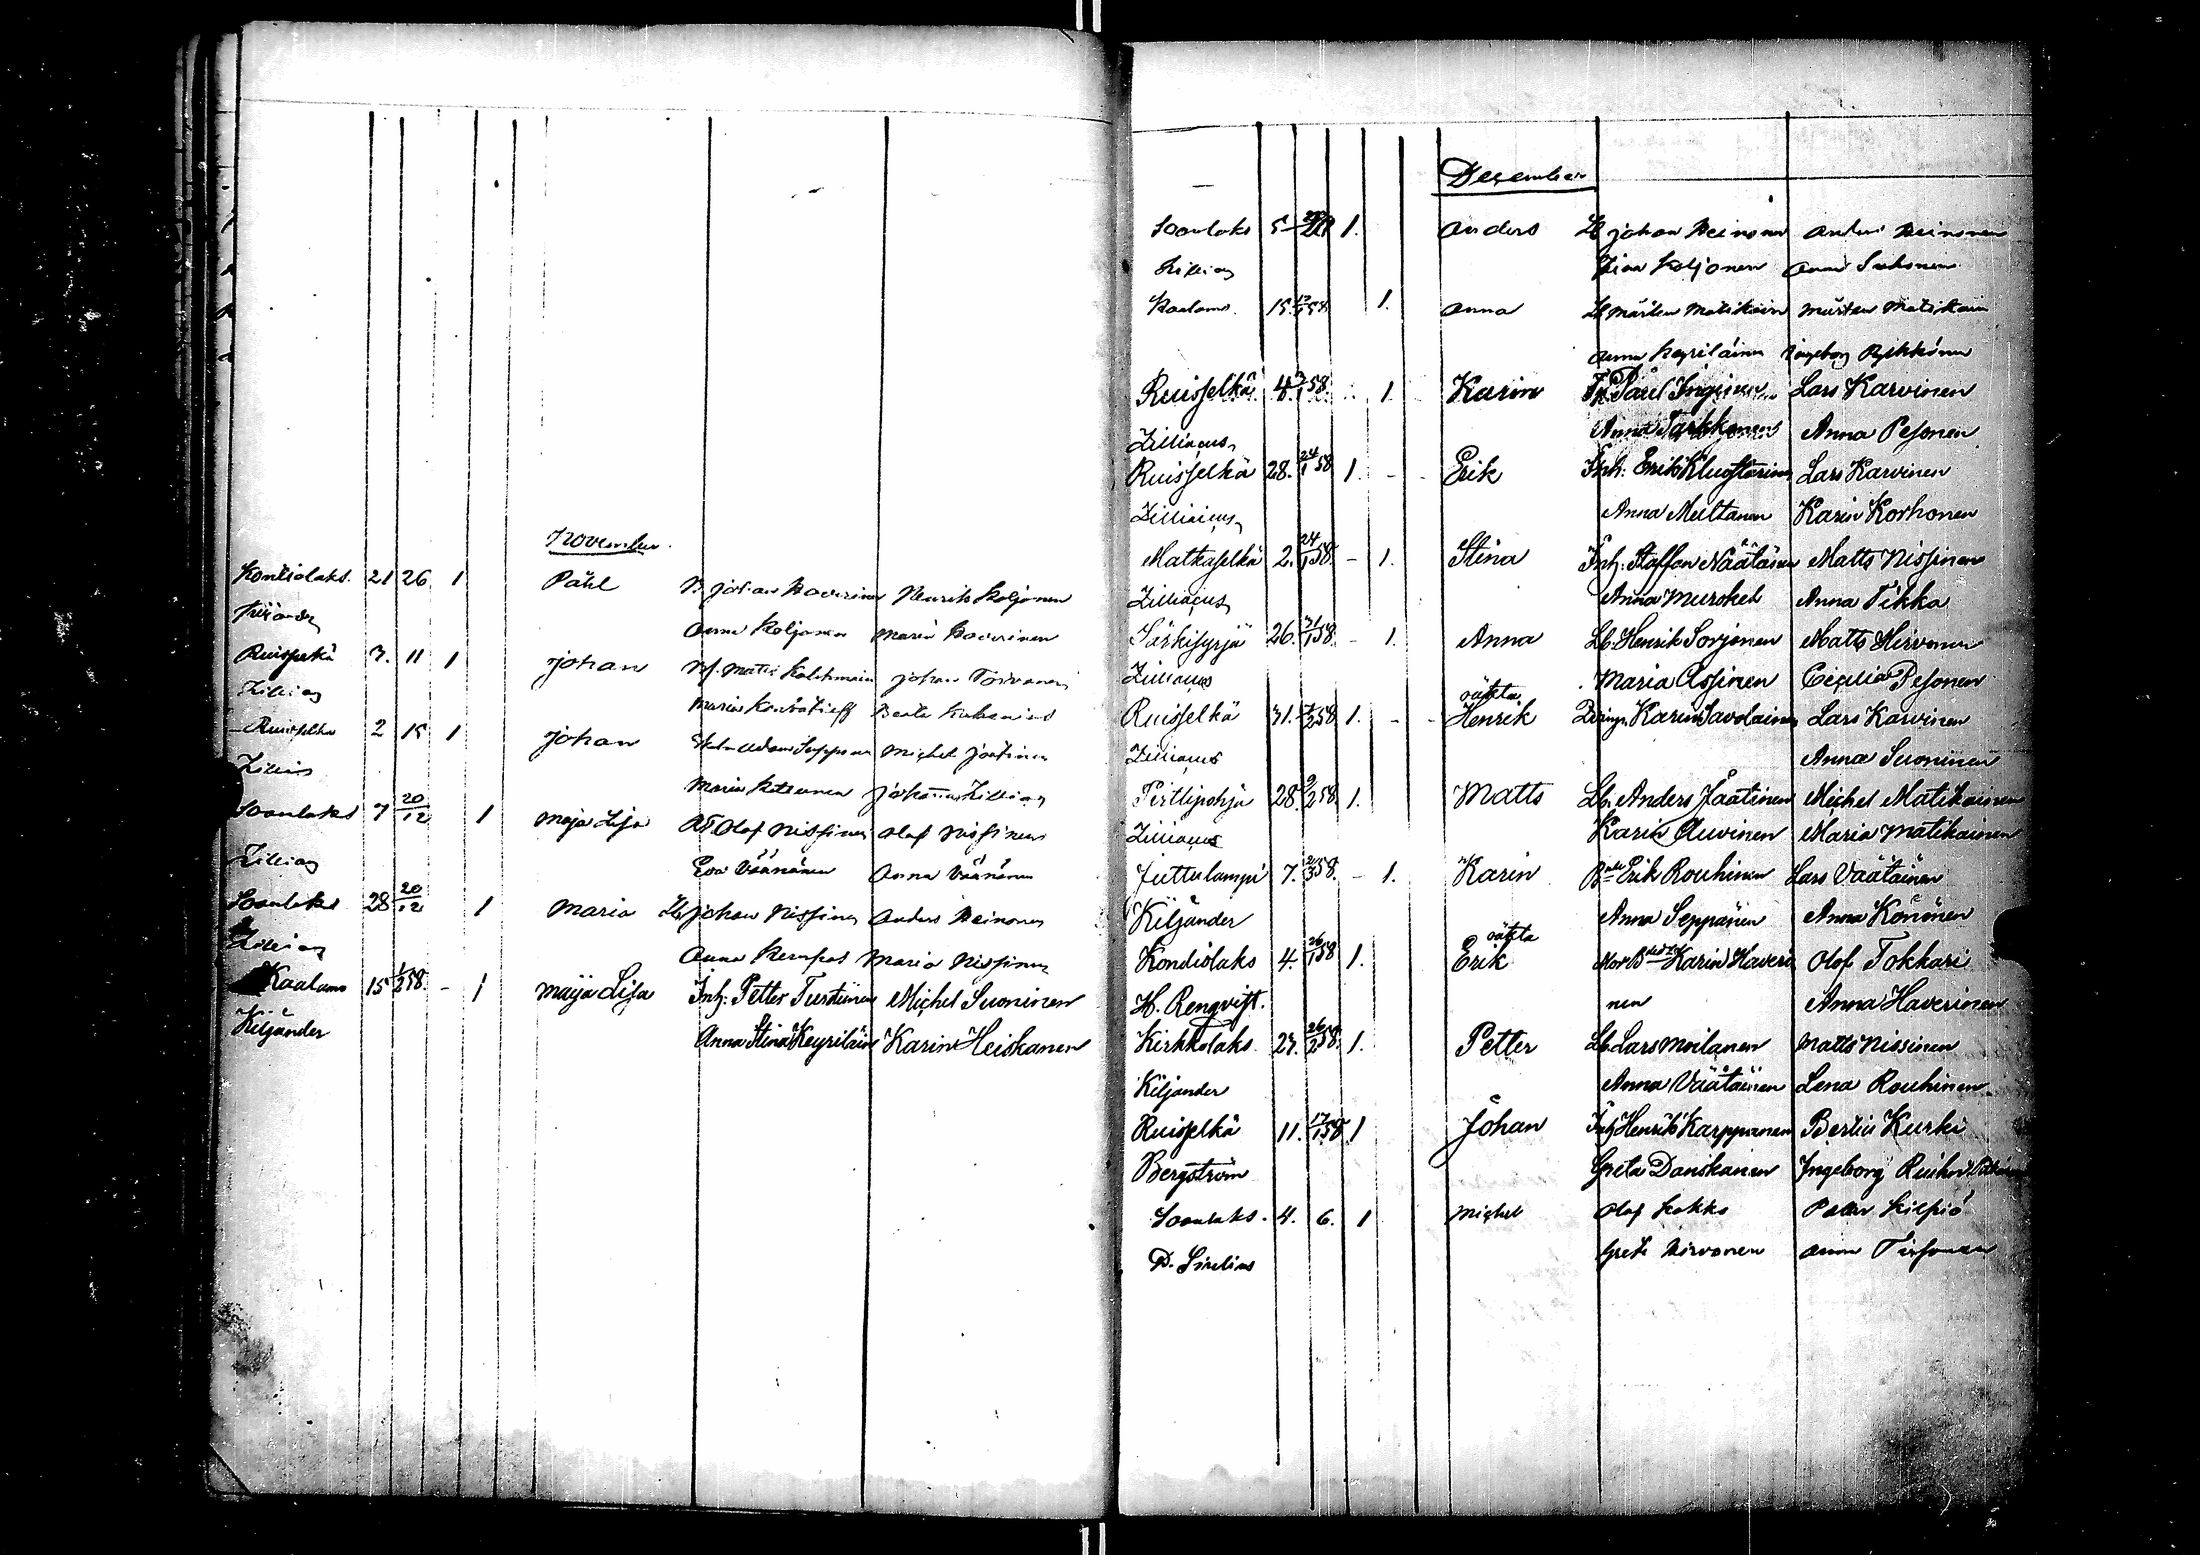 November
Kontiolaks 21 26 1 Påhl Johan Haverinen Henrik Koljonen
Kiljander Anna Koljonen Maria Haverinen
Ruisselkä 3. 11 1 Johan Johan Torvonen
Zilliac Maria Beata
Ruisselkä 2 15 1 Johan Michel Jäätinen
Zilliac Maria Johanna Zilliac
Soanlaks 7 20/12 1 Maja Lisa Olof Nissinen Olof Nissinen
Zilliac Eva Väänänen Anna Väänänen
Soanlaks 28 20/12 1 Maria Johan Nissinen Anders Heinonen
Zilliac Anna Kempas Maria Nissinen
Kaalamo 15 1/2 58. - 1 Maija Lisa Inh: Petter Turstinen Michel Suoninen
Kiljander Anna Stina Keyriläin Karin Heiskanen
December
Soanlaks 5 1. Anders Lb Johan Heinonen Anders Heinonen
Zilliac Lisa Koljonen Anna
Kaalamo 15. 1. Anna Lb Mårten Matikain Mårten Matikain
Anna Keyriläinen Ingeborg Pykkönen
Ruisselkä 4. 58. 1 Karin Påul Inginen Lars Karvinen
Zilliacus Anna Tarkkonen Anna Pesonen
Ruisselkä 28. 24/1 58 1. - Erik Inh: Erik Lars Karvinen
Zilliacus Anna Multanen Karin Korhonen
Matkaselkä 2. 24/1 58. - 1. Stina Inh: Staffan Näätänen Matts Nissinen
Zilliacus Anna Murokel Anna Tikka
Särkisyrjä 26. 31/1 58. - 1. Anna Lb. Henrik Sorjonen Matts Hirvonen
Zilliacus Maria Assinen Cecilia Pesonen
oäkta
Ruisselkä 31. 58. 1. - - Henrik Karin Savolainen Lars Karvinen
Zilliacus Anna Suoninen
Pirttipohja 28. 9/2 58. 1. Matts Lb. Anders Jäätinen Michel Matikainen
Zilliacus Karin Auvinen Maria Matikainen
Juttulampi 7. 58. - 1. Karin Erik Rouhinen Lars Väätäinen
Kiljander Anna Seppänen Anna Kononen
oäkta
Kondiolaks 4. 26/1 58 1. Erik Karin Haveri Olof Tokkari
H. Rengvist. nen Anna Haverinen
Kirkkolaks 27. 26/2 58. 1. Petter Lb. Lars Moilanen Matts Nissinen
Kiljander Anna Väätäinen Lena Rouhinen
Ruisselkä 11. 17/1 58 1 Johan Inh Henrik Karppanen Bertil Kurki
Bergström Greta Danskanen Ingeborg
Soanlaks. 4. 6. 1 Michel Olof Kokko Petter Kilpiö
D. Sirelius Greta Hirvonen Anna